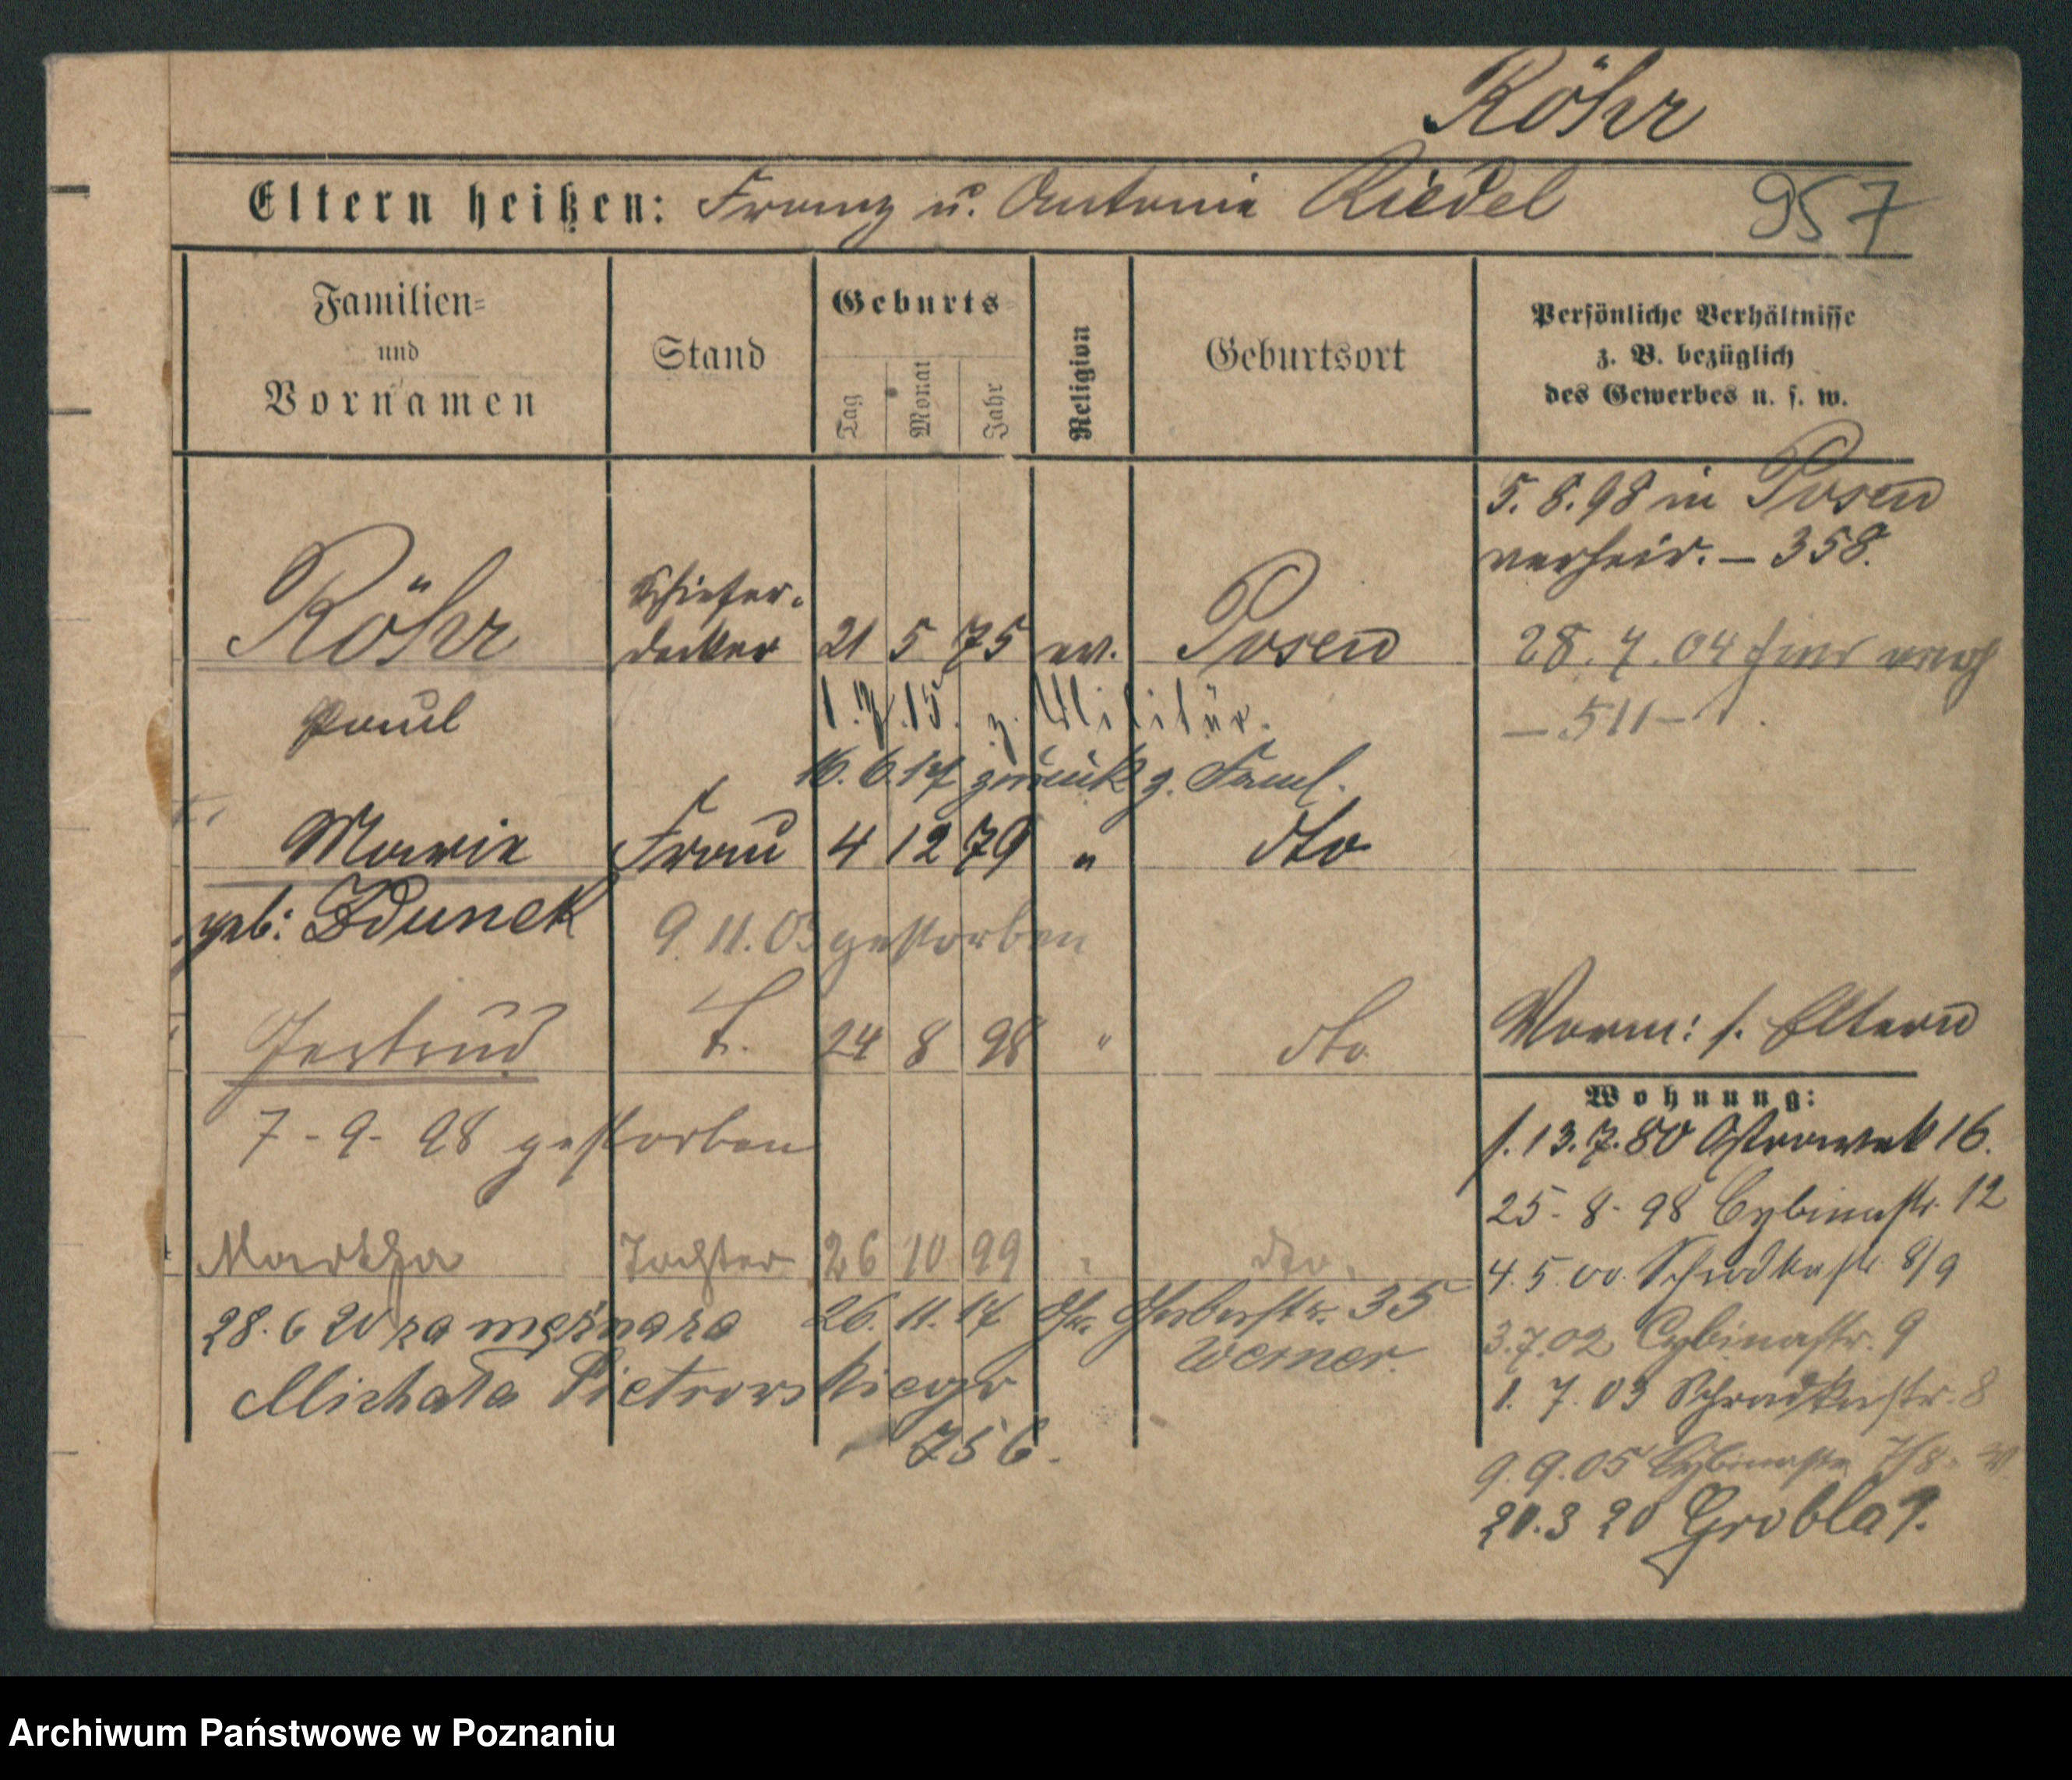 Röhr
Eltern heißen: Franz u. Antonie Riedel 957
Familien=
und
Vornamen
Stand
Geburts
Tag Monat Jahr
Religion
Geburtsort
Persönliche Verhältnisse
z. B. bezüglich
des Gewerbes u. s. w.
5. 8. 98 in Posen
verheir. – 358.
Röhr Schiefer-
decker 21 5 75 ev. Posen
28. 7. 04
Paul 1. 7. 15. z. Militär.
– 511 –
16. 6. 17 zurück z. Faml.
Marie Frau 4 12 79 " dto
geb: Zdunek 9. 11. 03 gestorben
Gertrud T. 24 8 98 " dto
Vorm: s. Eltern
7 - 9 - 98 gestorben
Wohnung:
s. 13. 7. 80 Ostrowek 16.
25 - 8 - 98 Cybinastr. 12
Martha Tochter 26 10 99 " dto.
4. 5. 00. Schrodkastr. 8/9
28. 6 20 za mężna za 26. 11. 17 Gerberstr. 35
Werner.
3. 7. 02 Cybinastr. 9
Michała Pietrowskiego
756.
1. 7. 03 Schrodkastr. 8
9. 9. 05 Cybinastr. 7/8
20. 3 20 Grobla 9.
Archiwum Państwowe w Poznaniu